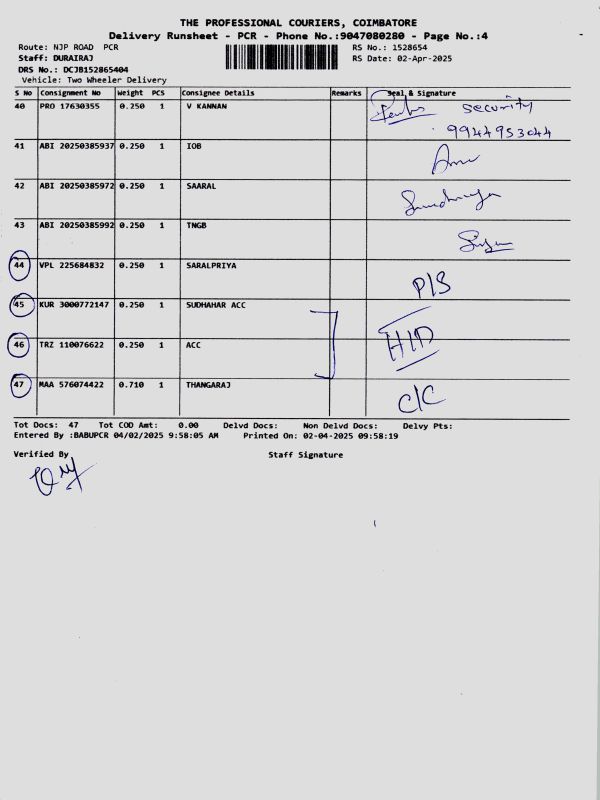 THE PROFESSIONAL COURIERS, COIMBATORE
Delivery Runsheet - PCR - Phone No.:9047080280 - Page No.:4
Route: NJP ROAD PCR RS No.: 1528654
Staff: DURAIRAJ RS Date: 02-Apr-2025
DRS No.: DCJB152865404
Vehicle: Two Wheeler Delivery
S No Consignment No Weight PCS Consignee Details Remarks Seal & Signature
40 PRO 17630355 0.250 1 V KANNAN security
9944953044
41 ABI 20250385937 0.250 1 IOB
42 ABI 20250385972 0.250 1 SAARAL
43 ABI 20250385992 0.250 1 TNGB
44 VPL 225684832 0.250 1 SARALPRIYA P/S
45 KUR 3000772147 0.250 1 SUDHAHAR ACC
46 TRZ 110076622 0.250 1 ACC H/D
47 MAA 576074422 0.710 1 THANGARAJ C/C
Tot Docs: 47 Tot COD Amt: 0.00 Delvd Docs: Non Delvd Docs: Delvy Pts:
Entered By :BABUPCR 04/02/2025 9:58:05 AM Printed On: 02-04-2025 09:58:19
Verified By Staff Signature